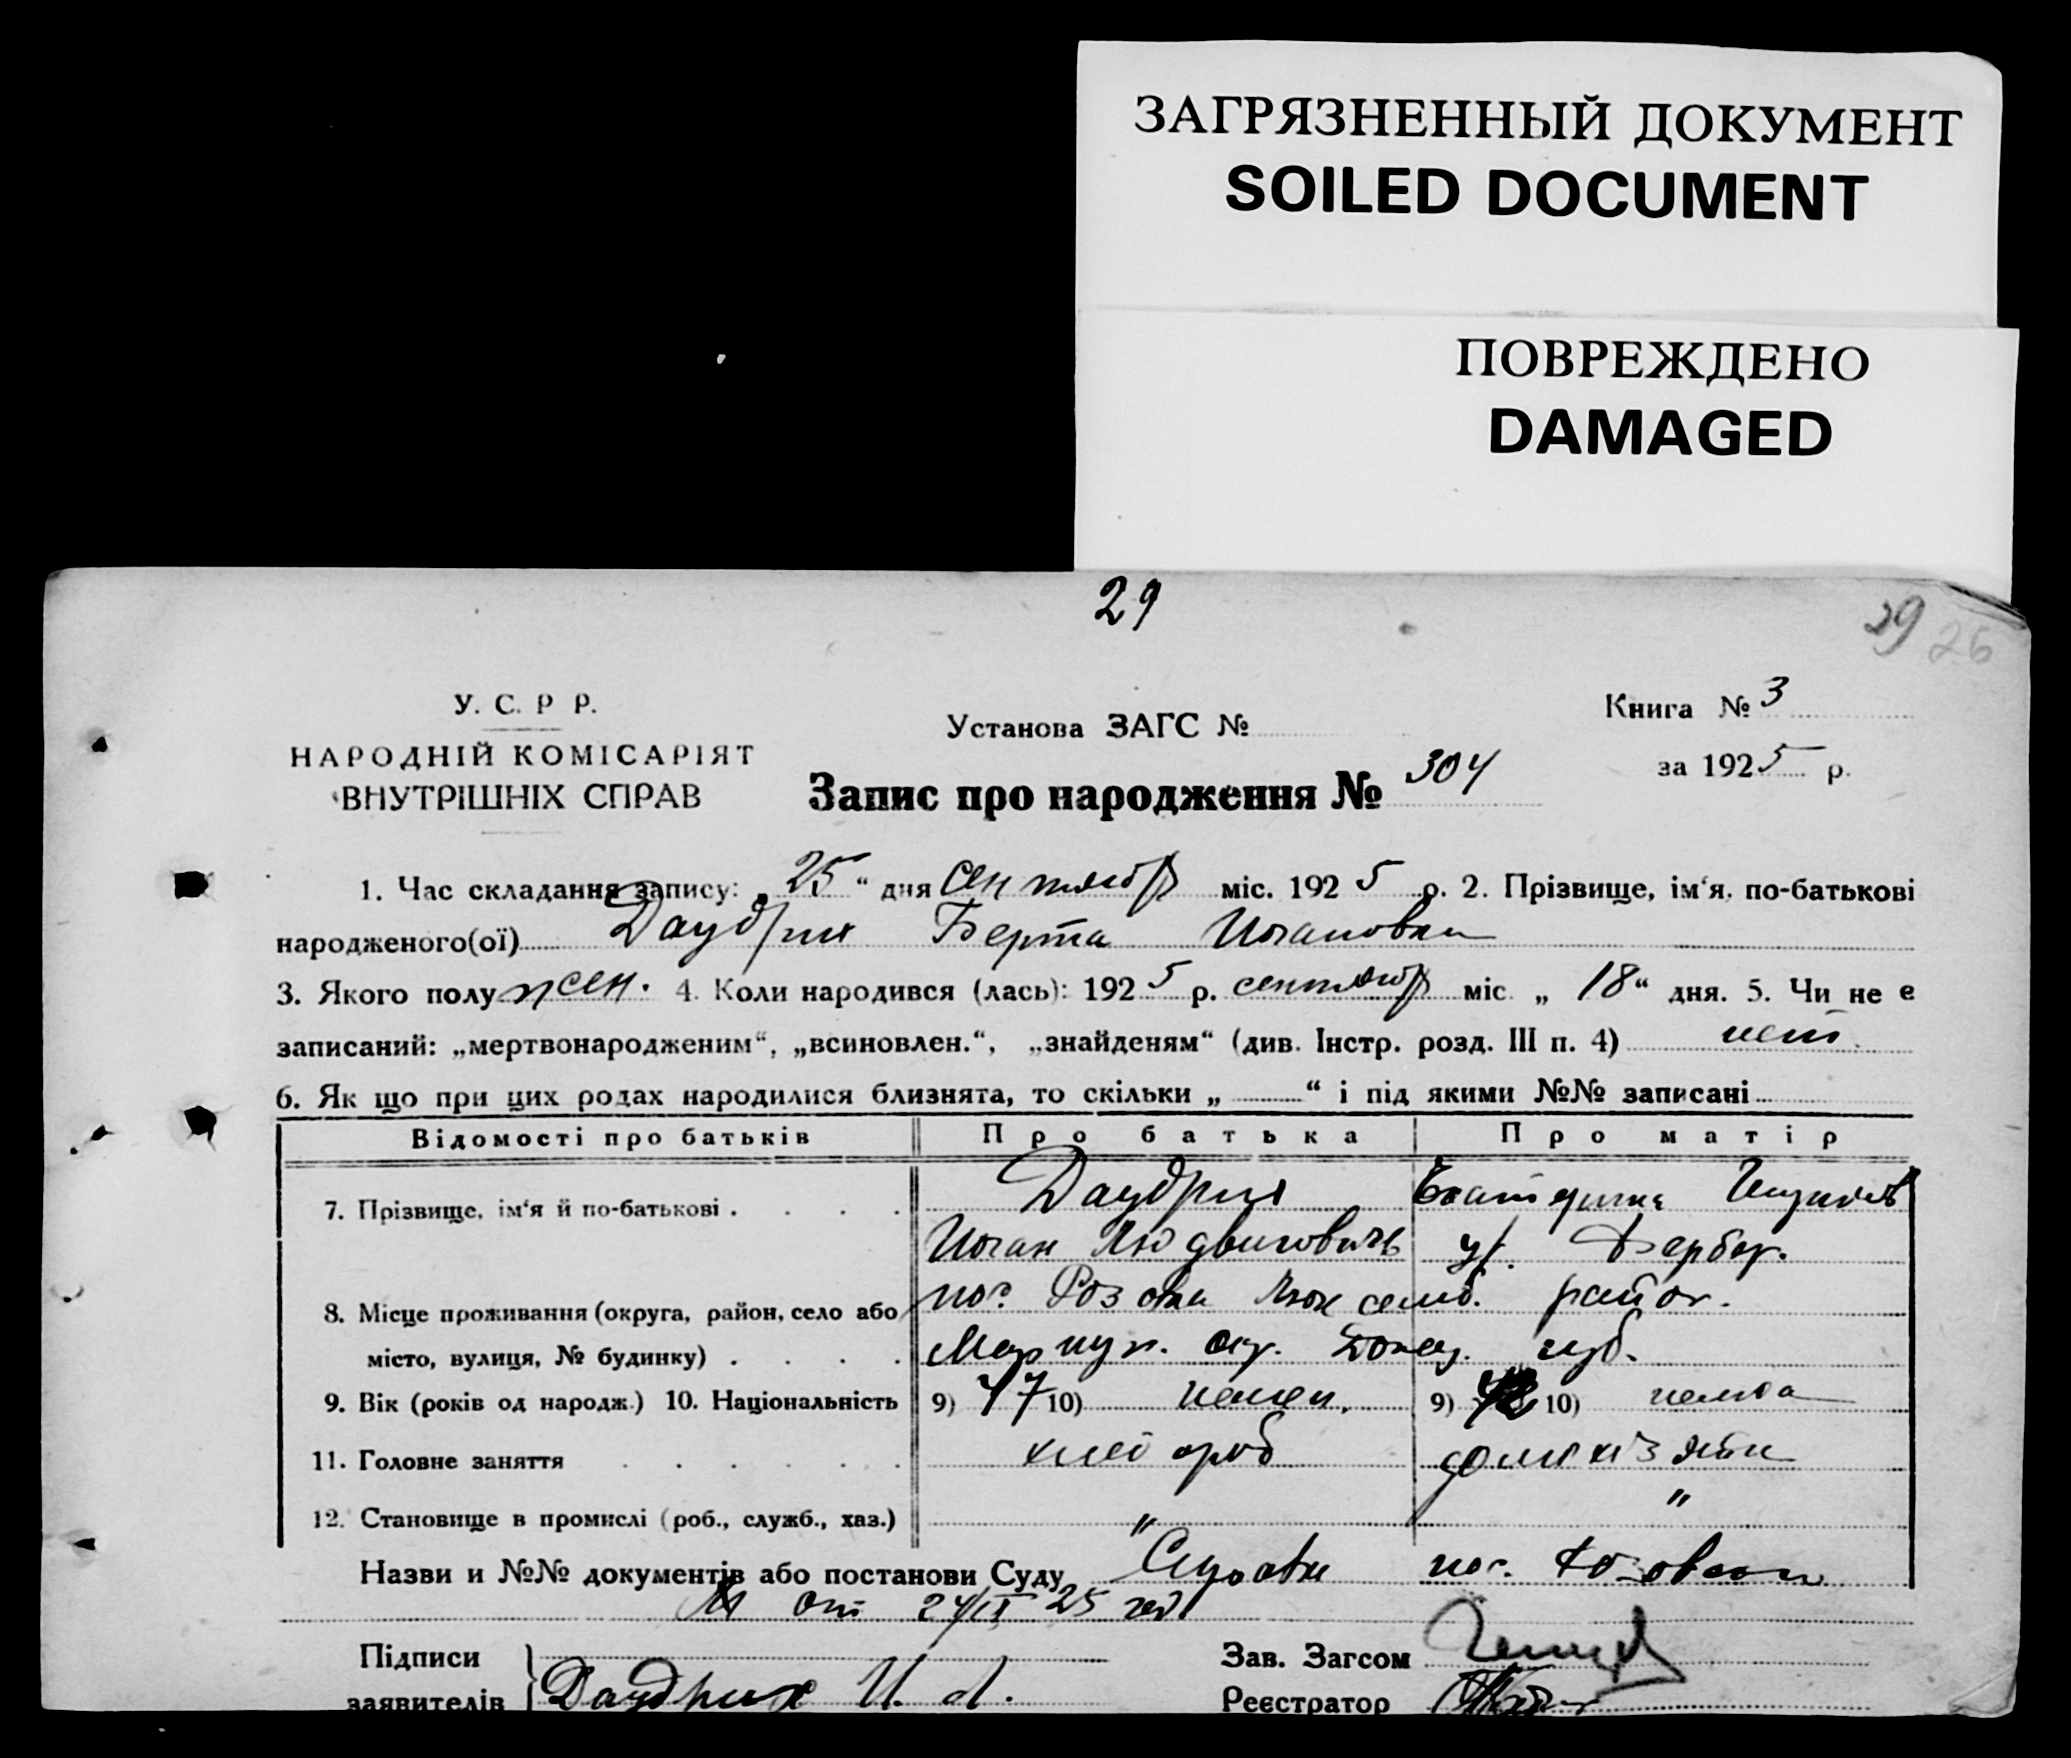 ЗАГРЯЗНЕННЫЙ ДОКУМЕНТ
SOILED DOCUMENT
ПОВРЕЖДЕНО
DAMAGED
29
29 26
У. С. Р Р.
НАРОДНІЙ КОМІСАРІЯТ
ВНУТРІШНІХ СПРАВ
Установа ЗАГС №
Запис про народження № 304
Книга № 3
за 1925 р.
1. Час складання запису: „25“ дня сентябр міс. 1925 р. 2. Прізвище, ім‘я, по-батькові
народженого(ої) Даудрих Берта Иогановна
3. Якого полу жен. 4. Коли народився (лась): 1925 р. сентябр міс. „18“ дня. 5. Чи не є
записаний: „мертвонародженим“, „всиновлен.“, „знайденям“ (див. Інстр. розд. III п. 4) нет
6. Як що при цих родах народилися близнята, то скільки „ “ і під якими №№ записані
Відомості про батьків Про батька Про матір
7. Прізвище, ім‘я й по-батькові . . . . Даудрих Екатерина
Иоган Людвигович ур.
8. Місце проживання (округа, район, село або пос. Розовка Люксемб. район.
місто, вулиця, № будинку) . . . . Мариуп. окр. Донец. губ.
9. Вік (років од народж.) 10. Національність 9) 47 10) немец. 9) 42 10) немка
11. Головне заняття . . . . . . хлебороб домохозяйк
12. Становище в промислі (роб., служб., хаз.) " "
Назви и №№ документів або постанови Суду Справка пос. Розовского
№ от 24/IX 25 год
Підписи
заявителів Даудрих И. Л.
Зав. Загсом
Реєстратор